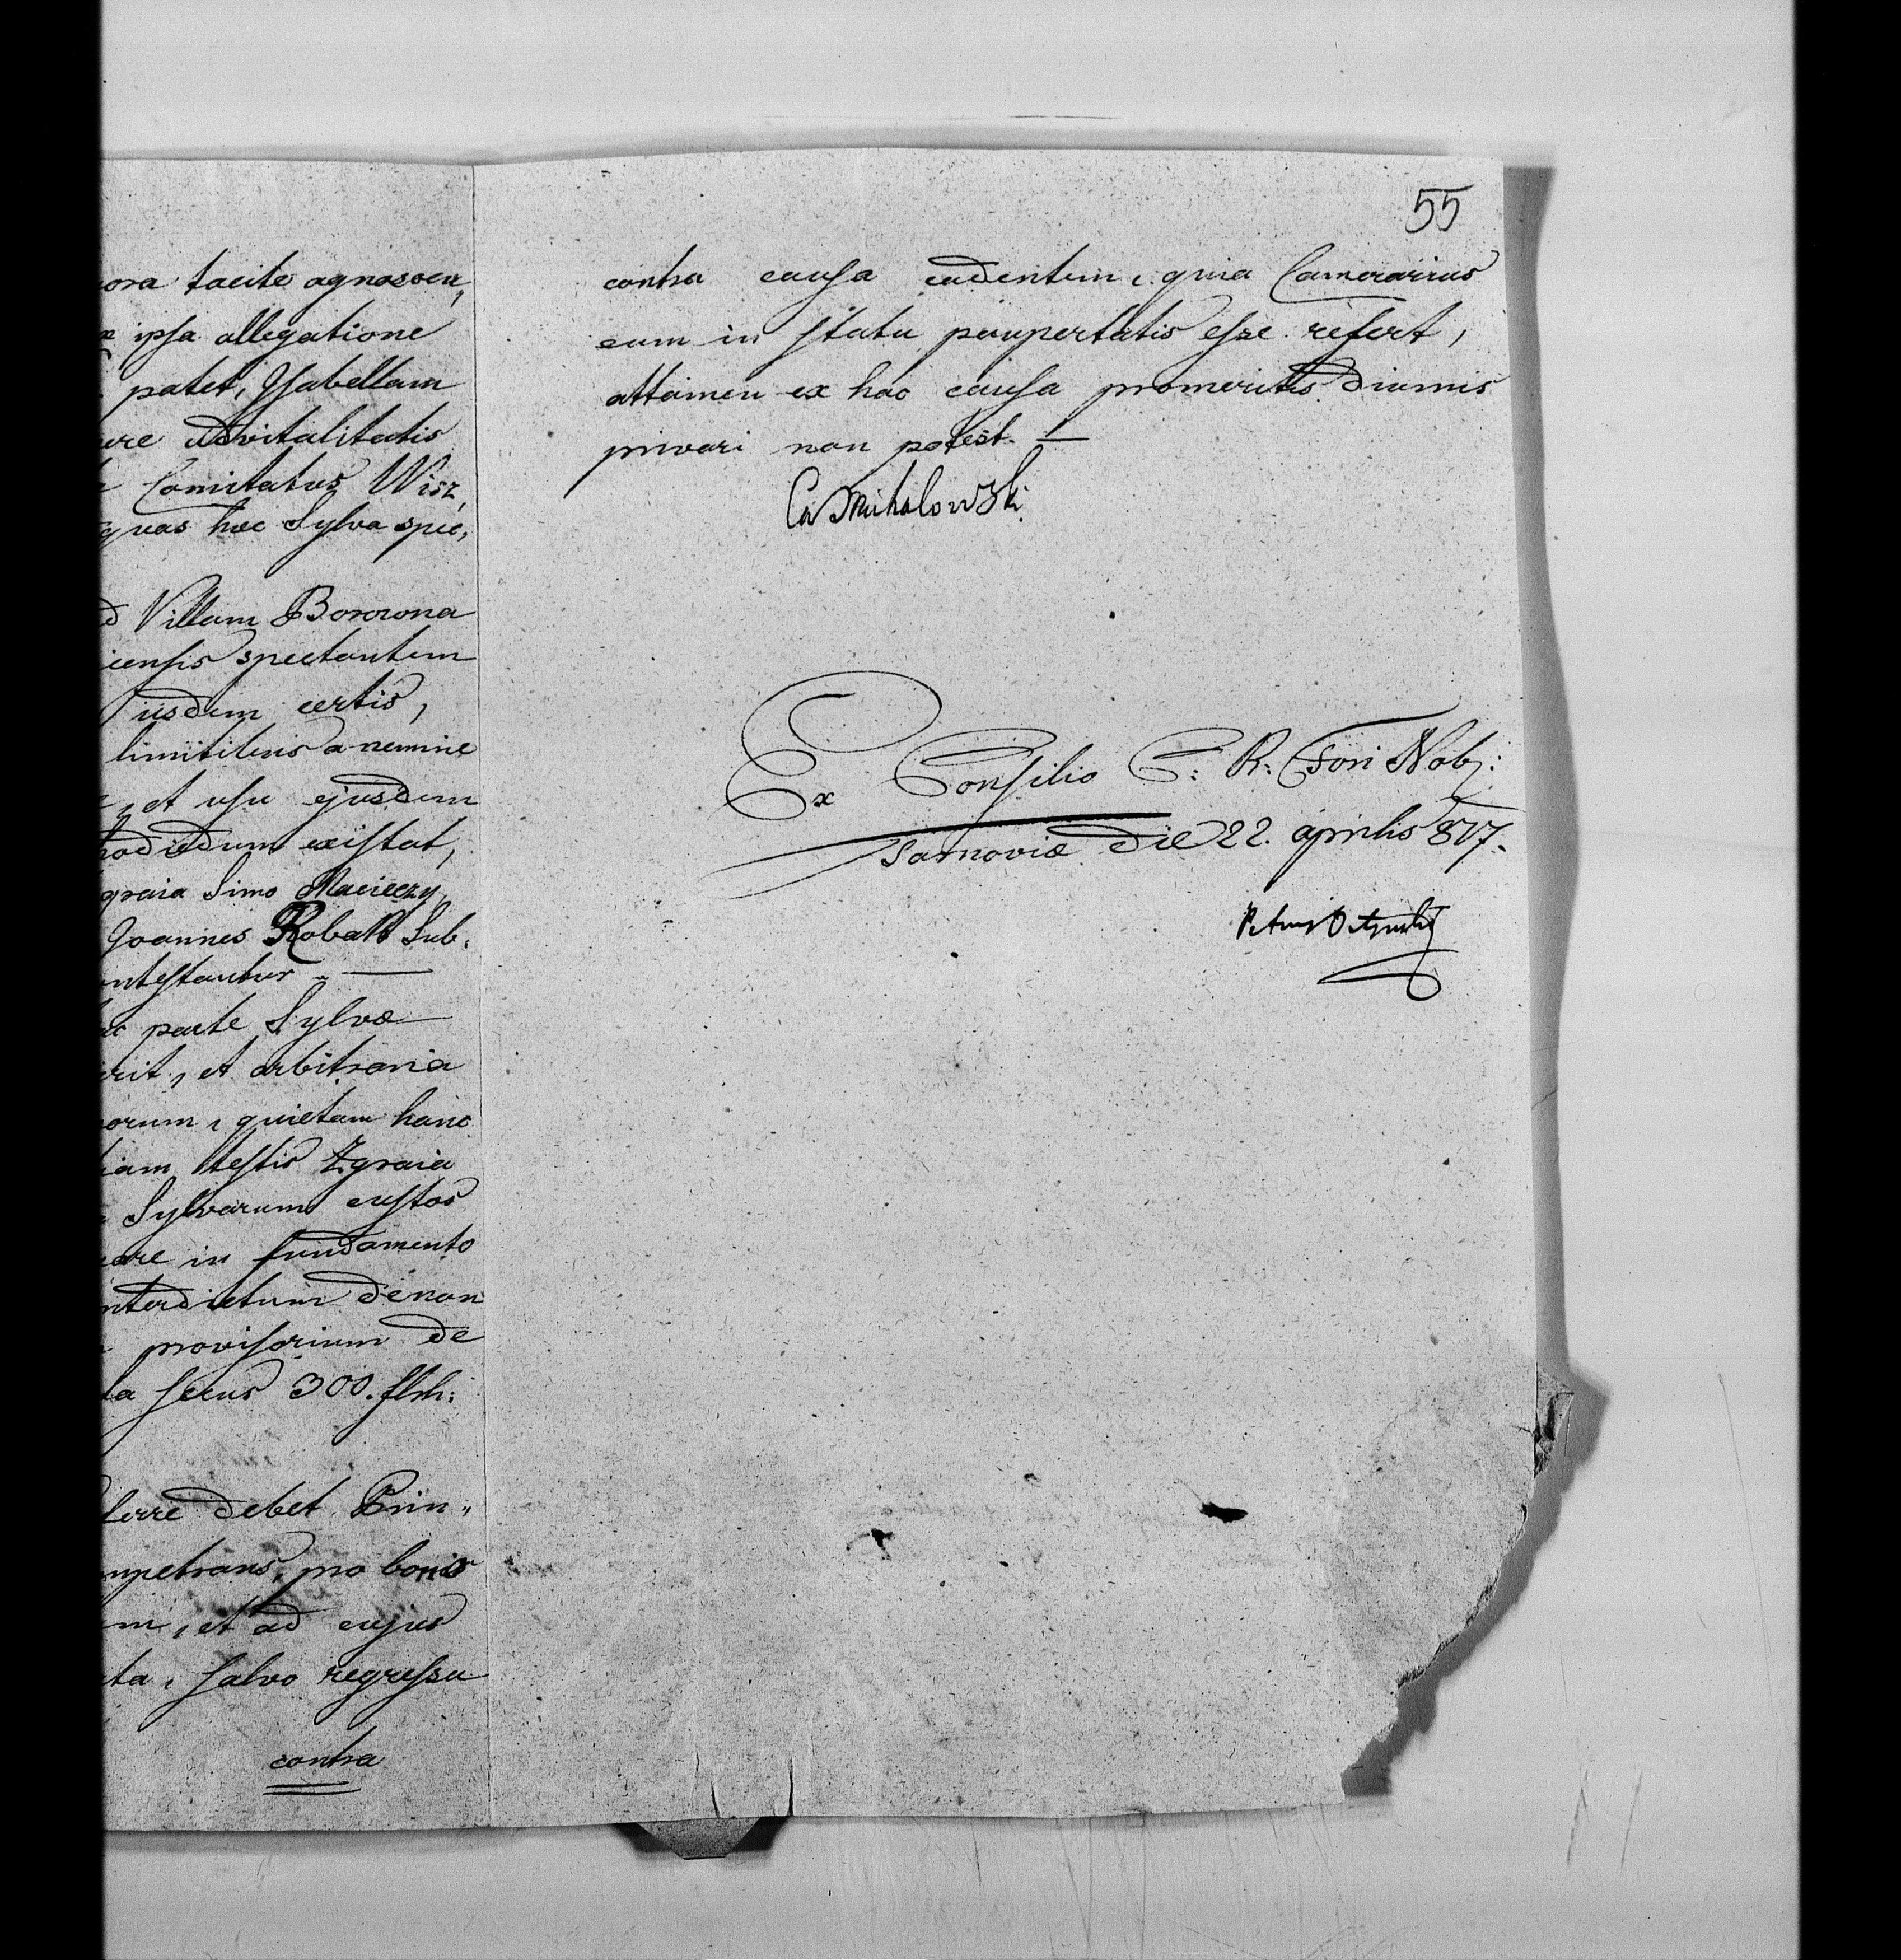 ora tacite agnoscen,
ipsa allegatione
patet, Ysabellam
ere advitalitatis
Comitatus Wisz,
quas hæc Sylva spec,
Villam Borowna
icensis spectantem
iisdem certis,
limitibus a nemine
, et usu ejusdem
hodiedum existat,
graia Simo Macieczy,
Joannes Robak Sub,
ntestantur. —
parte Sylvæ
rit, et arbitraria
orum, quietam hanc
iam, testis Zgraia
Sylvarum custos
are in fundamento
nterdictum de non
provisorium de
la secus 300. flrh:
ferre debet Prin„
mpetrans, pro bonis
m, et ad cujus
ta, salvo regressu
contra
55
contra causa cadentem, quia Camerarius
eum in statu paupertatis esse refert,
attamen ex hac causa promeritis diurnis
privari non potest. —
Ca Michalowski
Ex Consilio C: R: Fori Nob:
Tarnoviæ die 22. aprilis 817.
Petrus